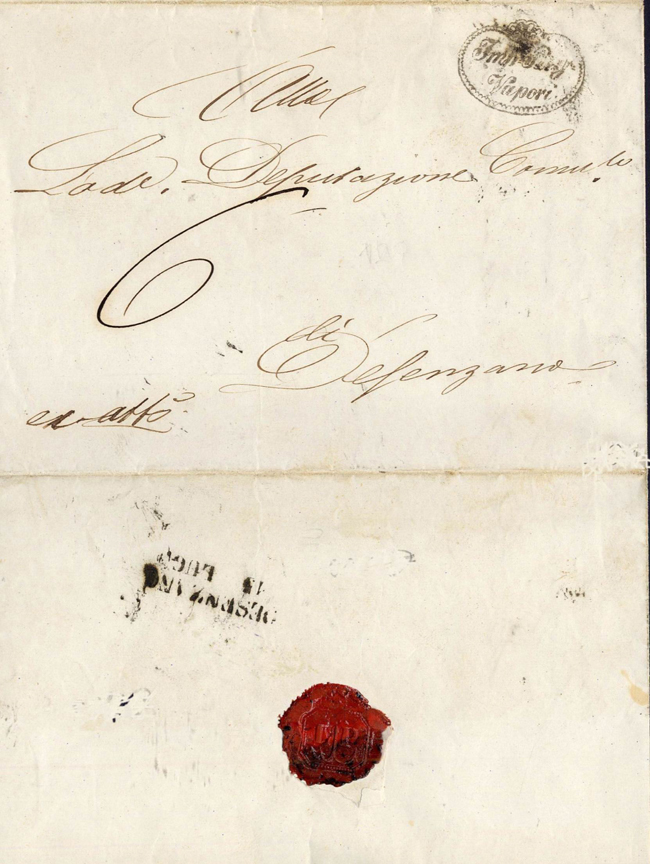 Imp. Reg.
Vapori
Alla
Lode. Deputazione Comu.le
6
di
Desenzano
ex-atto
DESENZANO
13 LUG